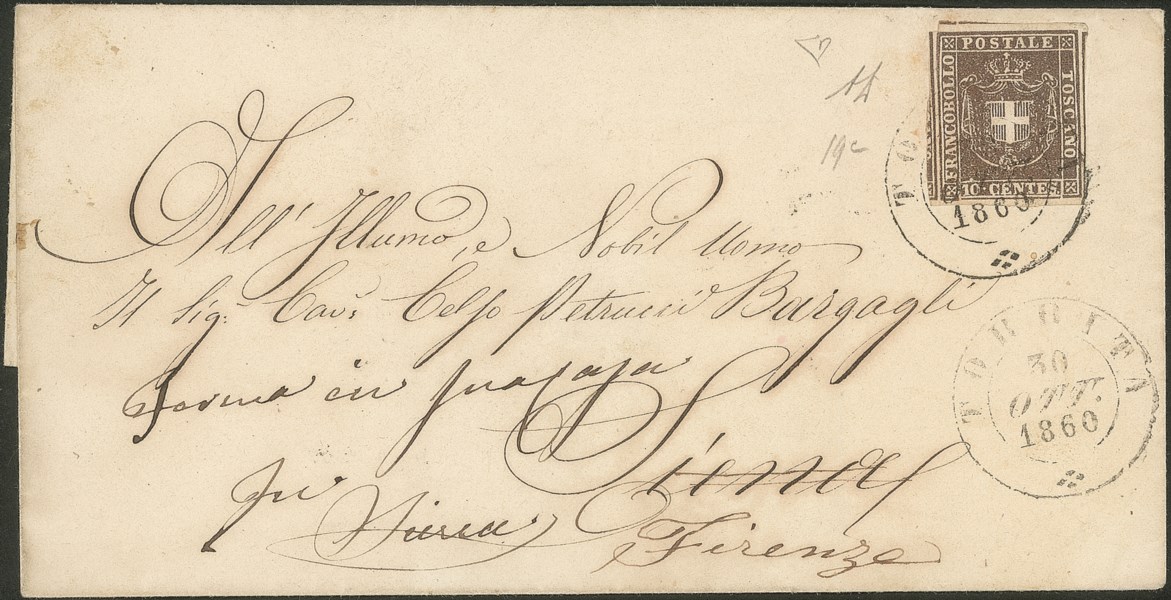 FRANCOBOLLO
POSTALE
TOSCANO
10 CENTES
19c
TO
1860
All' Illumo, e Nobil Uomo
Il Sig: Cav: Celso Petrucci Bargagli
Torna in sua casa
Siena
Siena
Firenze
TORRITA
30
OTT.
1860